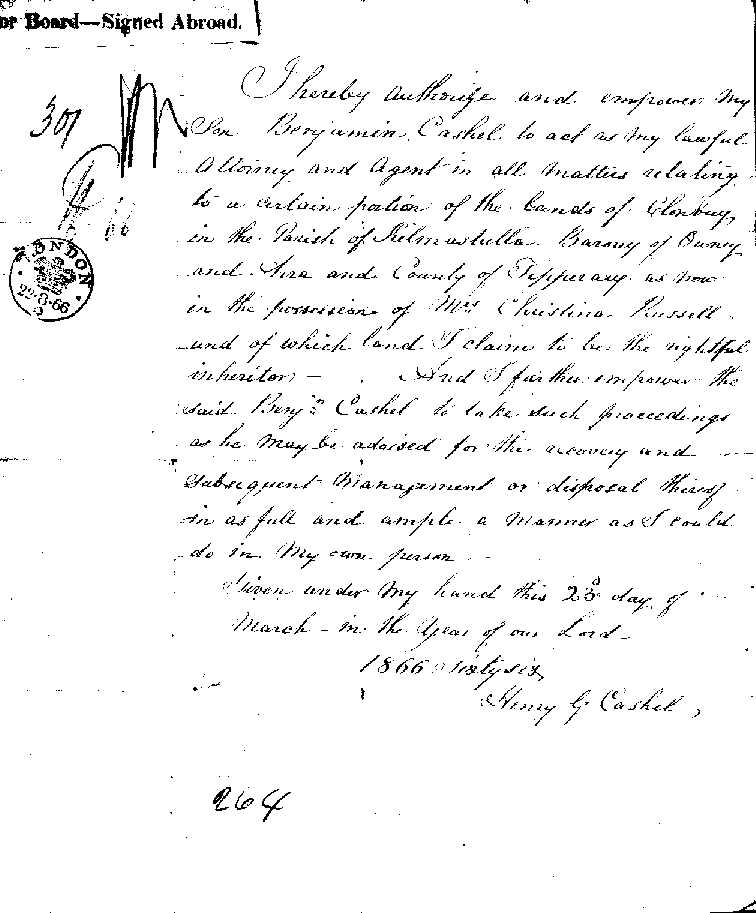 or Board—Signed Abroad.
I hereby authorize and empower My
Son Benjamin Cashel to act as My lawful
Attorney and Agent in all Matters relating
to a certain portion of the Lands of Clonbuy,
in the Parish of Kilmastulla Barony of Owney
and Arra and County of Tipperary as now
in the possession of Mrs Christina Russell
and of which land I claim to be the rightful
inheritor— And I further empower the
said Benjn Cashel to take such proceedings
as he May be advised for the recovery and
Subsequent Management or disposal thereof
in as full and ample a Manner as I could
do in My own person
Given under My hand this 23d day of
March – in the Year of our Lord
1866 Sixtysix
Henry G Cashel,
301
66
LONDON
22·8·66
264